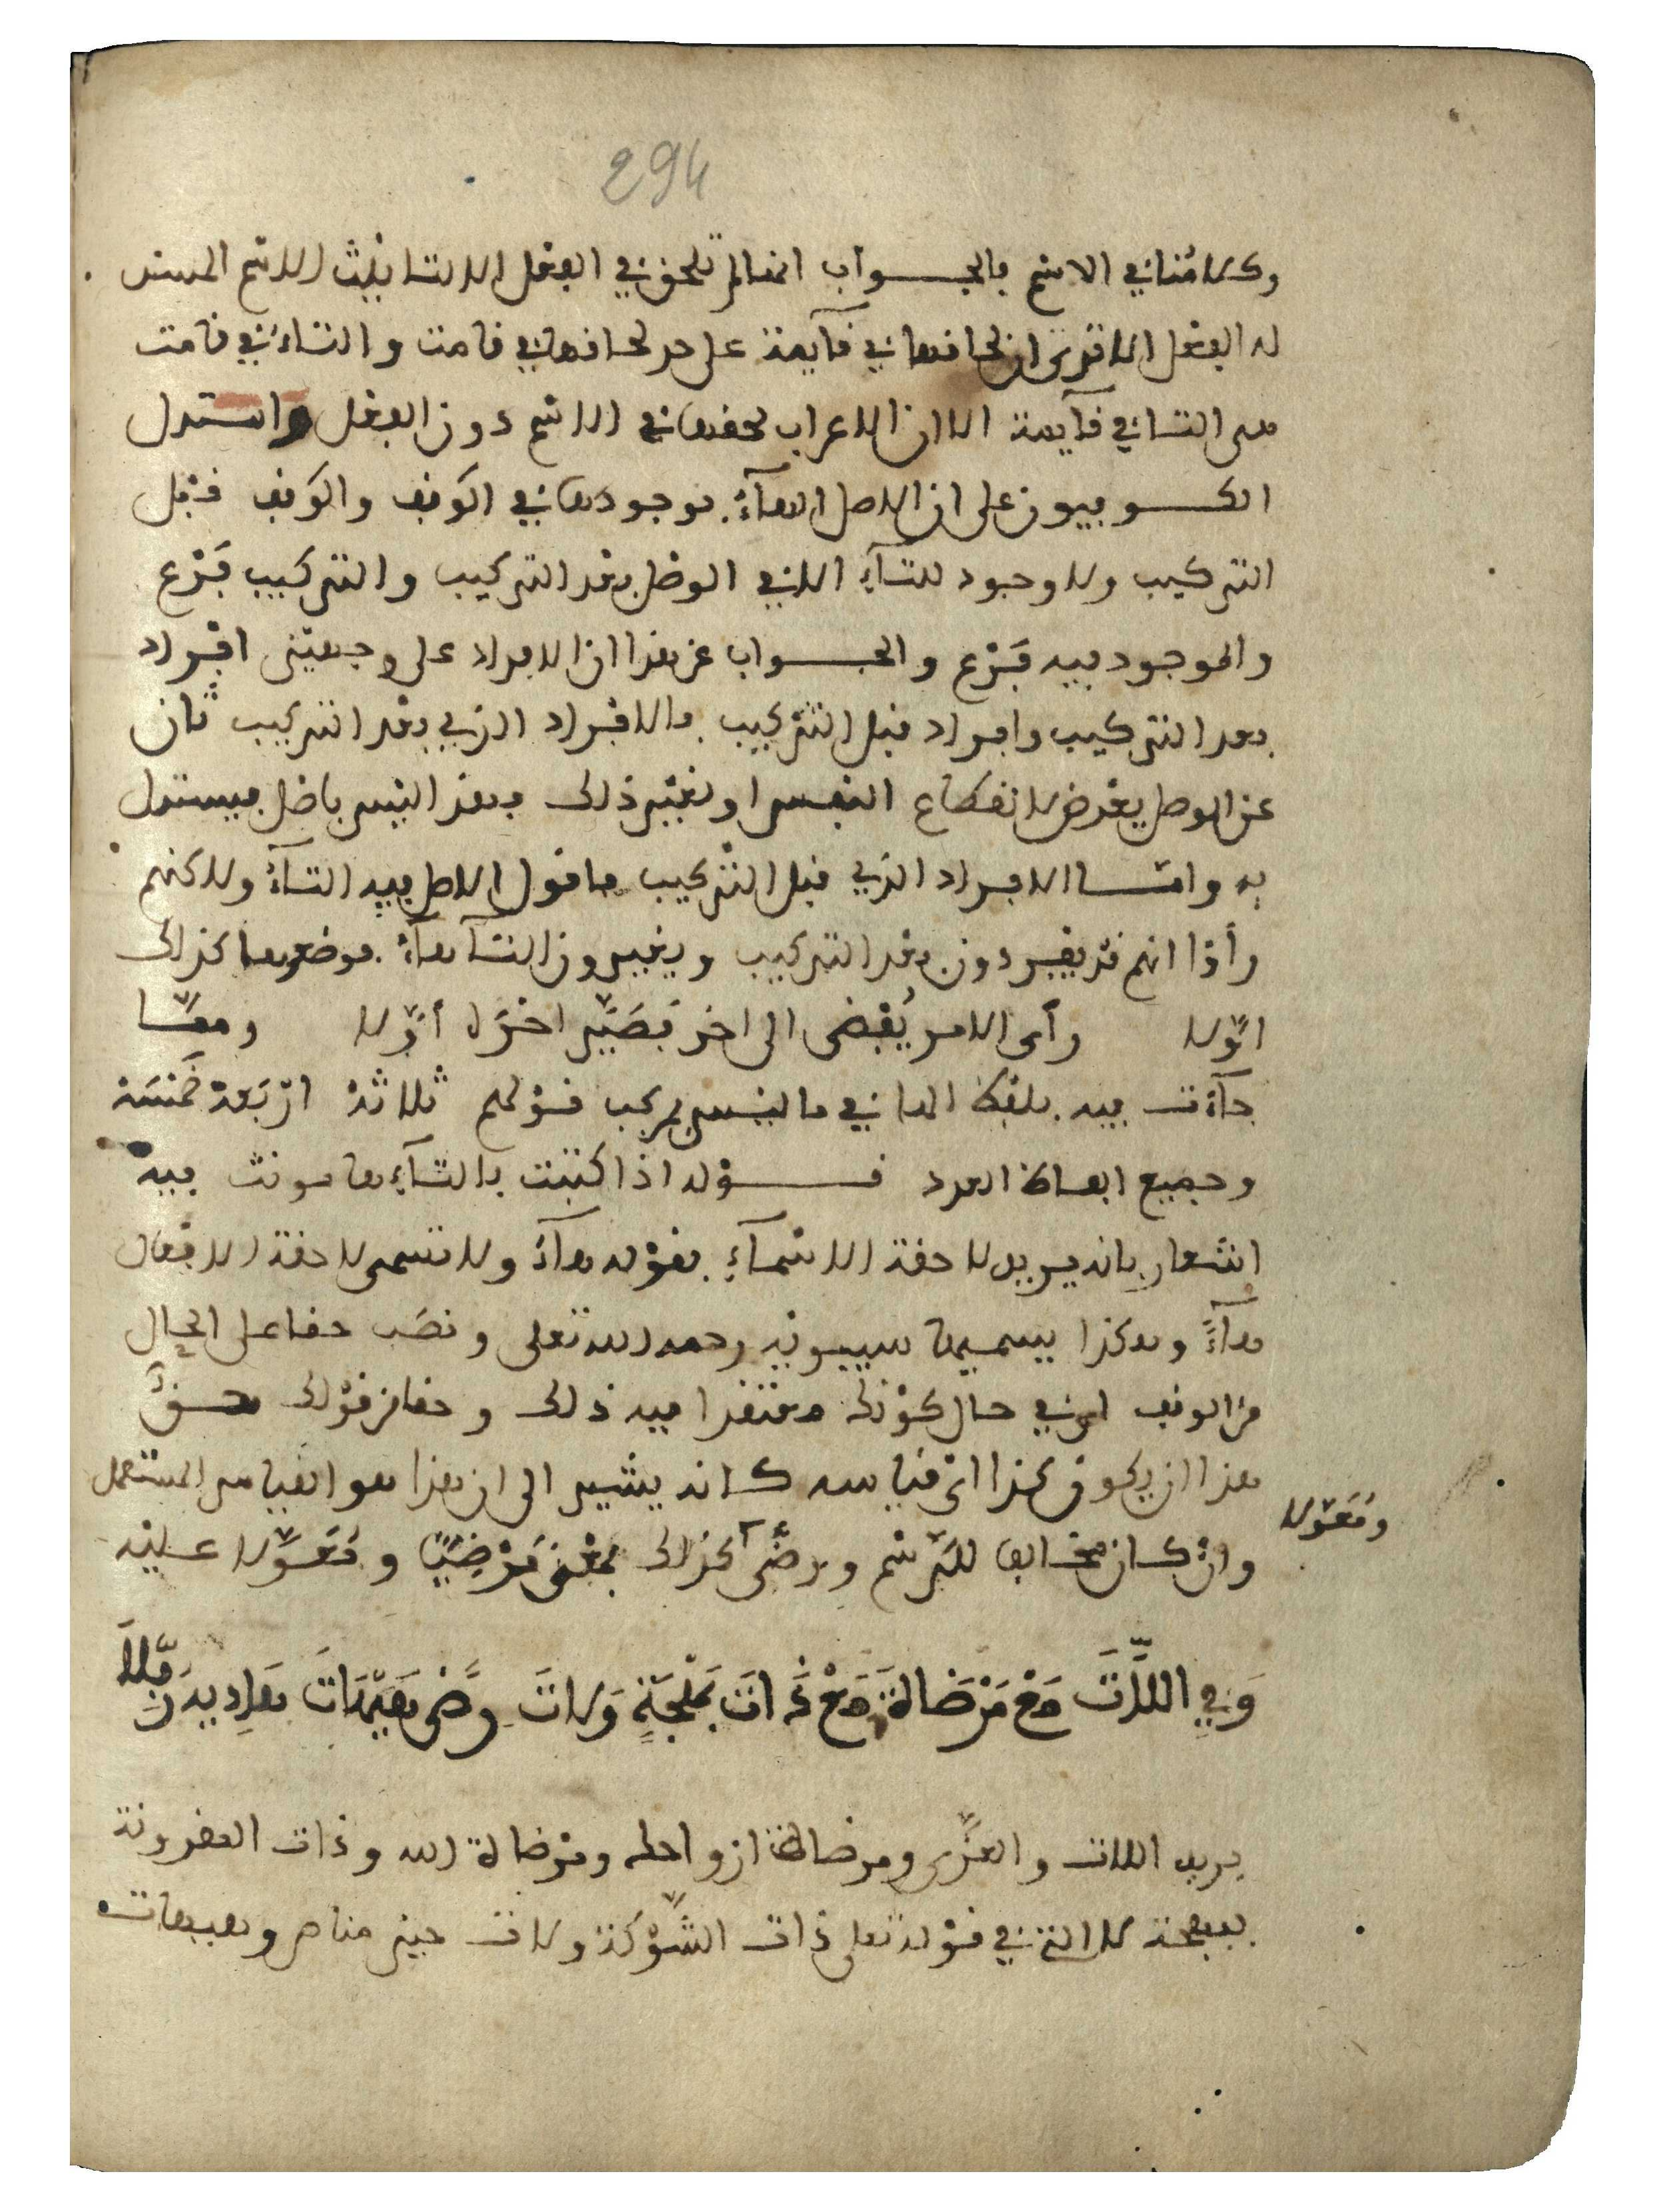 294
وكلامنا في الاسم فالجواب انها لم تلحق في الفعل الا لتانيث الاسم المسند
له الفعل الا ترى ان لحاقها في قآيمة على حد لحاقها في قامت والتاء في قامت
هى التا في قآيمة الا ان الاعراب لحقها في الاسم دون الفعل واستدل
الكوفيون على ان الاصل الهآء بوجودها في الوقف والوقف قبل
التركيب ولا وجود للتآء الا في الوصل بعد التركيب والتركيب فرع
والموجود فيه فرع والجواب عن هذا ان الافراد على وجهين افراد
بعد التركيب وافراد قبل التركيب فالافراد الذي بعد التركيب ثان
عن الوصل يعرض لانقطاع النفس او لغير ذلك فهذا ليس باصل فيستدل
به واما الافراد الذي قبل التركيب فانقول الاصل فيه التآء ولاكنهم
رأوا انهم قد يفردون بعد التركيب ويغيرون التا هآء فوضعوها كذلك
اوّلا رأى الامر يُفضى الى اخر فصَيّر اخرَه أوّلا ومما
جآءت فيه بلفظ الها في ما ليس بمركب قولهم ثلاثة ارْبَعة خمْسَة
وجميع الفاظ العدد قوله اذا كتبت بالتآء ها مونث فيه
اشعار بانه يريد لاحقة الاسمآء بقوله هآء ولا تسمى لاحقة الافعال
هآءً وهكذا يسميها سيبويه رحمه الله تعلى ونصَب حقا على الحال
من الوقف اى في حال كونك معتقدا فيه ذلك وحقا من قولك حقّ
هذا ان يكون كذا اى قياسه كانه يشير الى ان هذا هو القياس المستعمل
وان كان مخالفا للرسم ورضًى كذلك بمعنى مَرْضِيًّا ومُعَوّلا عليه
ومُعَوّلا
وَفِي اللَّاتَ مَعْ مَرْضَاتَ مَعْ ذَاتَ بَهْجَةٍ وَلَاتَ رِضًى هَيْهَاتَ هَادِيهِ رُفِّلَا
يريد اللات والعزّى ومرضات ازواجك ومرضات الله وذات المقرونة
ببهجة لا التي في قوله تعلى ذات الشّوكة ولات حين مناص وهيهات